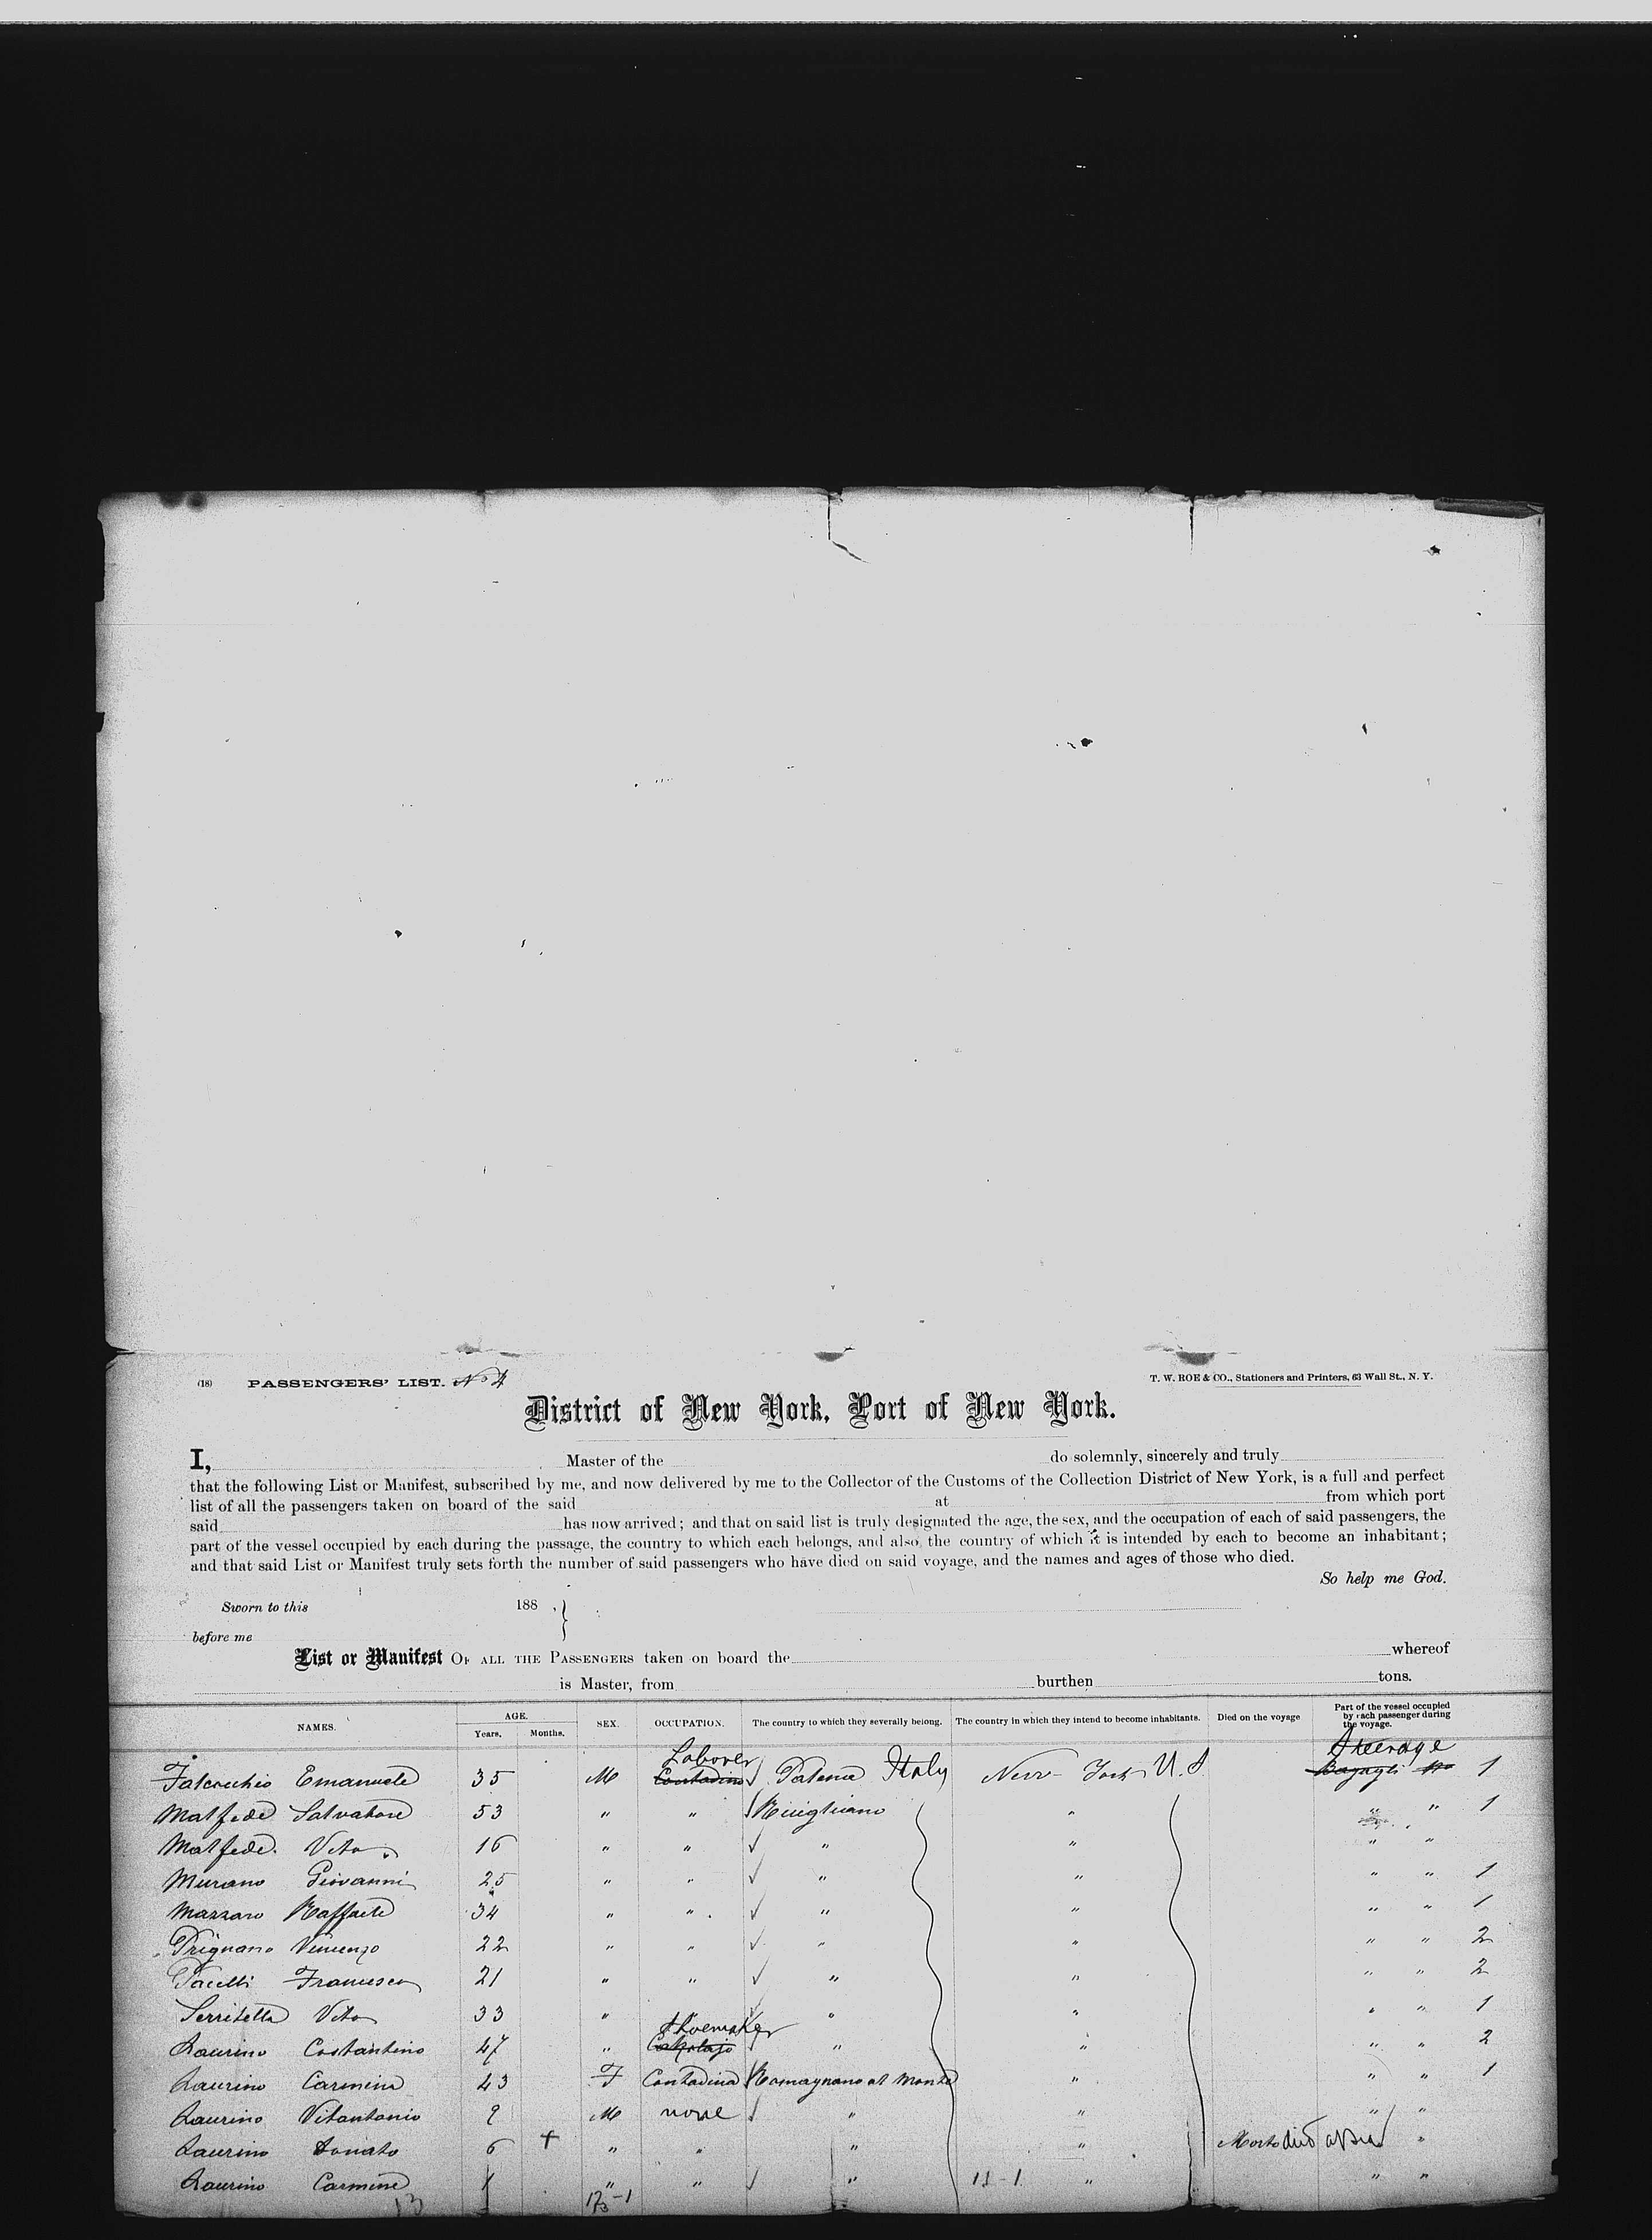 (18) PASSENGERS' LIST. No 4
T. W. ROE & CO., Stationers and Printers, 63 Wall St., N. Y.
District of New York, Port of New York.
I, Master of the do solemnly, sincerely and truly
that the following List or Manifest, subscribed by me, and now delivered by me to the Collector of the Customs of the Collection District of New York, is a full and perfect
list of all the passengers taken on board of the said at from which port
said has now arrived; and that on said list is truly designated the age, the sex, and the occupation of each of said passengers, the
part of the vessel occupied by each during the passage, the country to which each belongs, and also the country of which it is intended by each to become an inhabitant;
and that said List or Manifest truly sets forth the number of said passengers who have died on said voyage, and the names and ages of those who died.
So help me God.
Sworn to this 188
before me
List or Manifest OF ALL THE PASSENGERS taken on board the whereof
is Master, from burthen tons.
NAMES. AGE. Years. Months. SEX. OCCUPATION. The country to which they severally belong. The country in which they intend to become inhabitants. Died on the voyage Part of the vessel occupied by each passenger during the voyage.
Laborer Steerage
Falcucchio Emanuele 35 M Contadino Italy New York U.S 1
Malfede Salvatore 53 " " " " " 1
Malfede Vito 16 " " " " " "
Murano Giovanni 25 " " " " " " 1
Mazzaro Raffaele 34 " " " " " " 1
Prignano Vincenzo 22 " " " " " " 2
Pacelli Francesco 21 " " " " " " 2
Serritella Vito 33 " " " " " 1
Shoemaker
Laurino Costantino 47 " " " " " 2
Laurino Carmina 43 F Contadina Romagnano al Monte " " " 1
Laurino Vitantonio 9 M none " " " "
Laurino Donato 6 + " " " " Morto died at sea "
Laurino Carmine 1 " " " 11-1 " " "
13 12-1